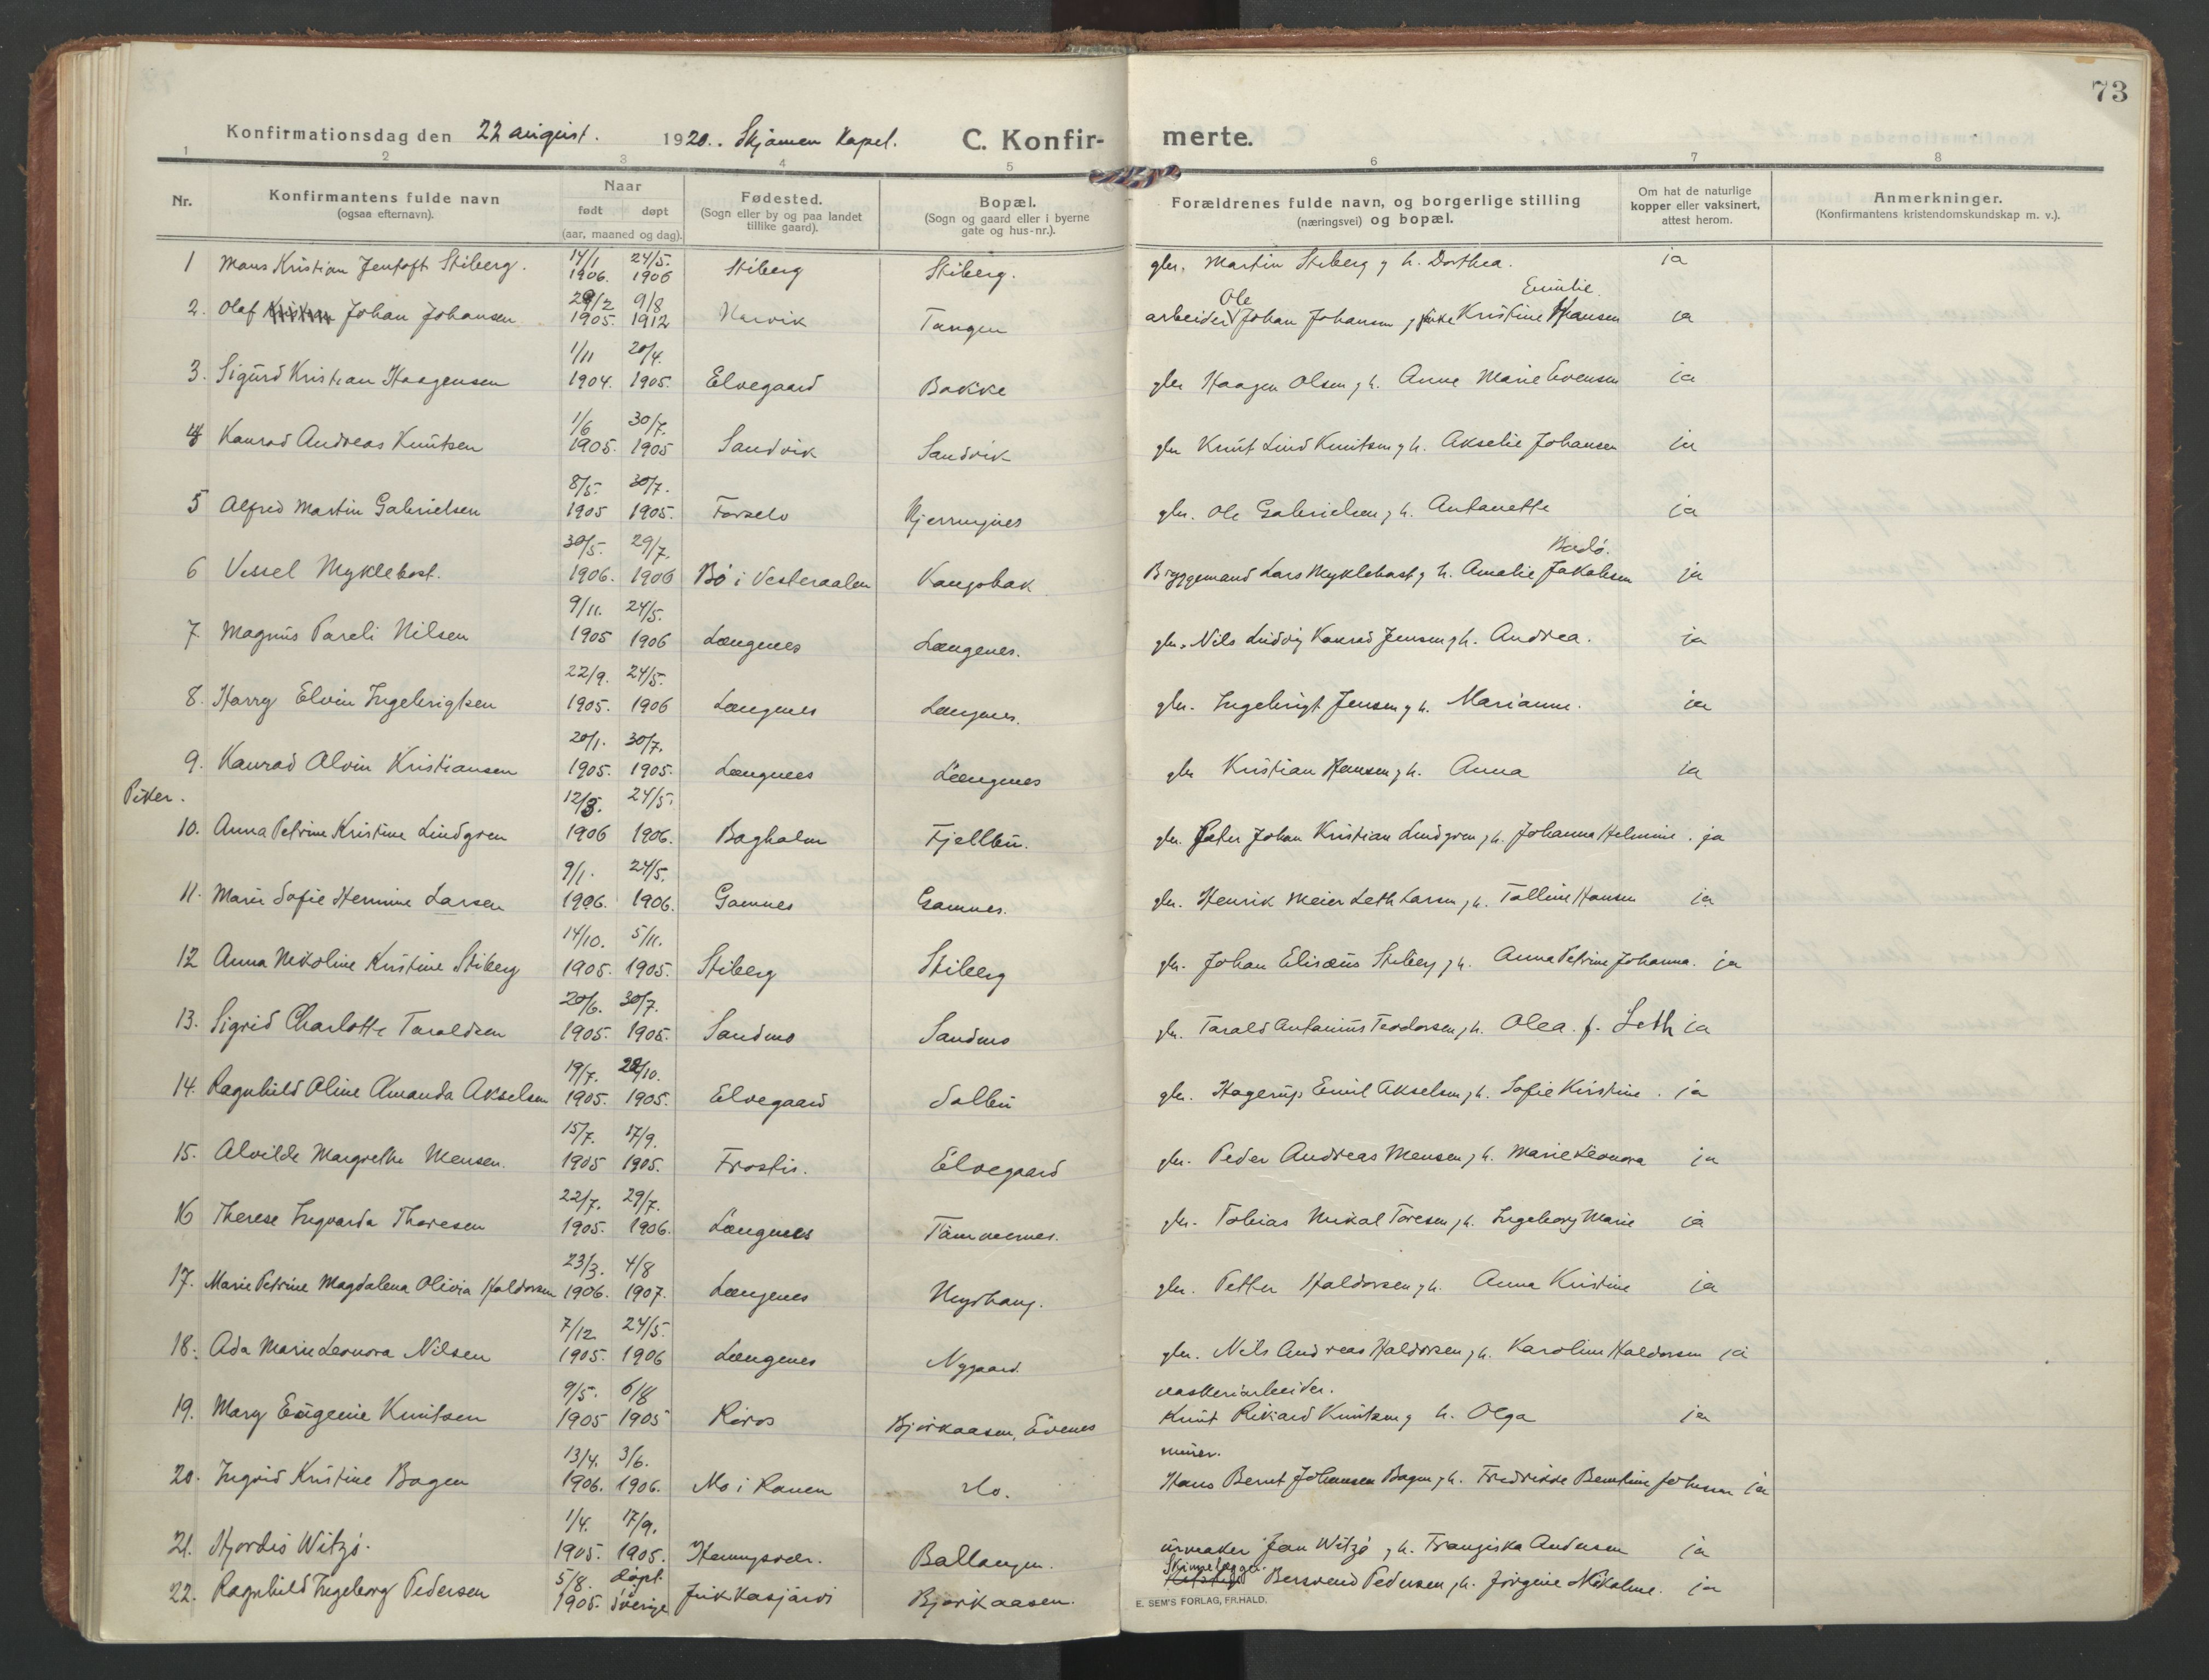 73
Konfirmationsdag den 22 august. 1920. Skjomen Kapel. C. Konfir-merte.
1 2 3 4 5 6 7 8
Nr. Konfirmantens fulde navn (ogsaa efternavn). Naar født døpt (aar, maaned og dag). Fødested. (Sogn eller by og paa landet tillike gaard). Bopæl. (Sogn og gaard eller i byerne gate og hus-nr.). Forældrenes fulde navn, og borgerlige stilling (næringsvei) og bopæl. Om hat de naturlige kopper eller vaksinert, attest herom. Anmerkninger. (Konfirmantens kristendomskundskap m. v.).
1 Mons Kristian Jentoft Stiberg. 14/1 1906. 24/5. 1906 Stiberg Stiberg. gbr. Martin Stiberg g h. Dorthea. ja
2. Olaf Johan Johansen 29/2 1905. 9/8 1912 Narvik Tangen arbeider Ole Johan Johansen g pike Kristine Emilie Hansen ja
3. Sigurd Kristian Haagensen 1/11 1904. 20/4. 1905. Elvegaard Bakke gbr Haagen Olsen g h. Anne Marie Evensen ja
4 Konrad Andreas Knutsen 1/6 1905. 30/7. 1905 Sandvik Sandvik gbr Knut Lind Knutsen g h. Akselie Johansen ja
5 Alfred Martin Gabrielsen 8/5. 1905 30/7. 1905. Forselv Kjerringnes gbr. Ole Gabrielsen g h. Antonette ja
6 Vessel Myklebost. 30/5. 1906. 29/7. 1906 Bö i Vesteraalen Kongsbak Bryggemand Lars Myklebost g h. Amalie Jakobsen Bodö. ja
7 Magnus Pareli Nilsen 9/11. 1905 24/5. 1906 Længenes Længenes. gbr. Nils Ludvig Konrad Jensen g h. Andrea. ja
8. Harry Elvin Ingebrigtsen 22/9. 1905. 24/5. 1906 Længenes Længenes. gbr. Ingebrigt Jensen g h. Marianne. ja
9. Konrad Alvin Kristiansen 20/1. 1905. 30/7. 1905. Længenes Længenes gbr Kristian Hansen g h. Anna ja
Piker.
10. Anna Petrine Kristine Lindgren 12/3. 1906 24/5. 1906. Bagholm Fjellbu. gbr. Peter Johan Kristian Lindgren g h. Johanna Helmine. ja
11. Marie Sofie Hermine Larsen 9/1. 1906. 24/5. 1906. Gamnes Gamnes. gbr. Henrik Meier Leth Larsen g h. Talline Hansen ja
12 Anna Nikoline Kristine Stiberg 14/10. 1905. 5/11. 1905. Stiberg Stiberg gbr. Johan Elisæus Stiberg g h. Anna Petrine Johanna. ja
13. Sigrid Charlotte Taraldsen 20/6. 1905. 30/7. 1905. Sandmo Sandmo gbr. Tarald Antonius Teodorsen g h. Olea f. Leth ja
14. Ragnhild Oline Amanda Akselsen 19/7. 1905. 22/10. 1905. Elvegaard Solbu gbr. Hagerup Emil Akselsen g h. Sofie Kristine. ja
15. Alvilde Margrethe Mensen. 15/7. 1905 17/9. 1905. Frostis. Elvegaard gbr. Peder Andreas Mensen g h. Marie Leonora ja
16 Therese Ingvarda Thoresen 22/7. 1905. 29/7. 1906. Længenes Tömmernes. gbr. Tobias Mikal Toresen g h. Ingeborg Marie ja
17. Marie Petrine Magdalena Olivia Haldorsen 23/3. 1906. 4/8 1907. Længenes gbr. Petter Haldorsen g h. Anna Kristine ja
18. Ada Marie Leonora Nilsen 7/12 1905. 24/5. 1906 Længenes Nygaard gbr. Nils Andreas Haldorsen g h. Karoline Haldorsen ja
19. Mary Eugenie Knutsen 9/5. 1905 6/8 1905 Röros Bjørkaasen, Evenes vaskeriarbeider. Knut Rikard Knutsen g h. Olga ja
20. Ingrid Kristine Bogen 13/4. 1906. 3/6. 1906. Mo i Ranen do. minør. Hans Bernt Johansen Bogen g h. Fredrikke Berntine Johnsen ja
21. Hjordis Witzö. 1/4. 1905. 17/9. 1905. Henningsvær. Ballangen. urmaker Jon Witzö g h. Franziska Andersen ja
22. Ragnhild Ingeborg Pedersen 5/8. 1905. döpt. Sverige Jukkasjärvi Bjørkaasen. Skinnelægger Bersvend Pedersen g h. Jörgine Nikoline. ja
E. SEM'S FORLAG, FR.HALD.